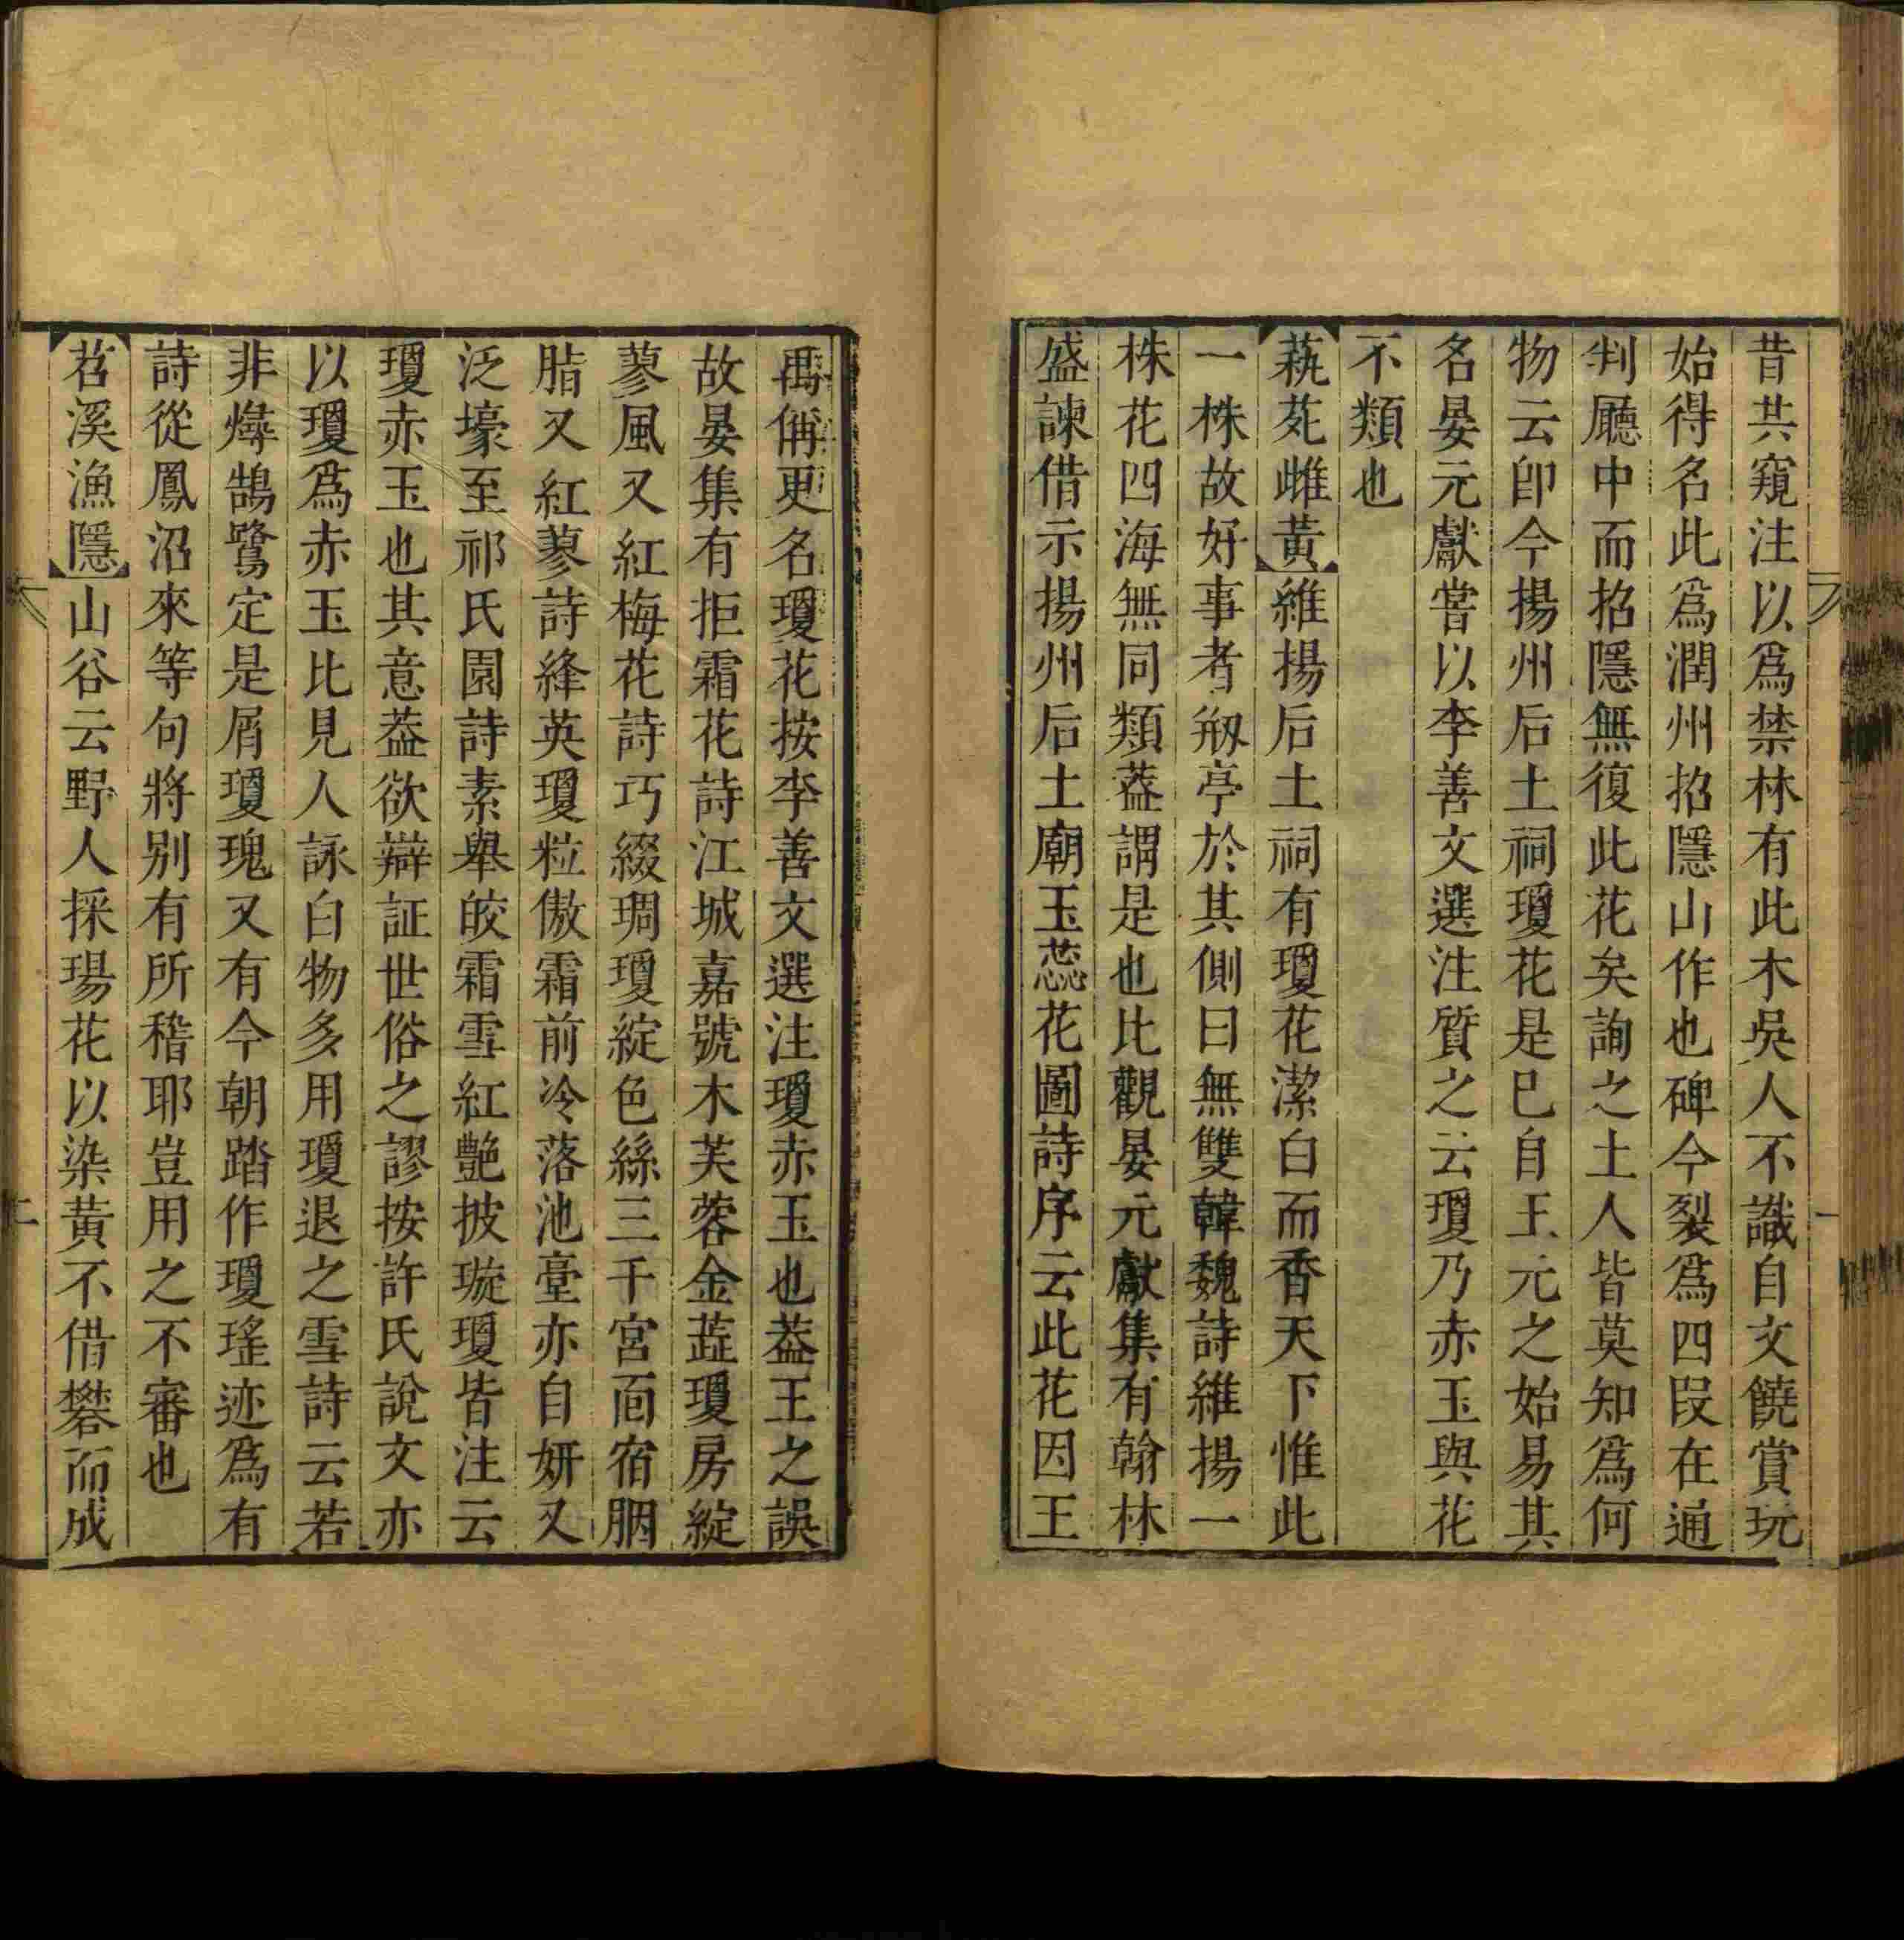 昔共窺注以爲禁林有此木吳人不識自文饒賞玩
始得名此爲潤州招隱山作也碑今裂爲四段在通
判廳中而招隱無復此花矣詢之土人皆莫知爲何
物云卽今揚州后土祠瓊花是已自王元之始易其
名晏元獻嘗以李善文選注質之云瓊乃赤玉與花
不類也
蓺苑雌黃維揚后土祠有瓊花潔白而香天下惟此
一株故好事者剏亭於其側曰無雙韓魏詩維揚一
株花四海無同類葢謂是也比觀晏元獻集有翰林
盛諫借示揚州后土廟玉蕊花圖詩序云此花因王
禹偁更名瓊花按李善文選注瓊赤玉也葢王之誤
故晏集有拒霜花詩江城嘉號木芙蓉金蕋瓊房綻
蓼風又紅梅花詩巧綴琱瓊綻色絲三千宮面宿胭
脂又紅蓼詩絳英瓊粒傲霜前冷落池臺亦自姸又
泛壕至祁氏園詩素舉皎霜雪紅艶披璇瓊皆注云
瓊赤玉也其意葢欲辯証世俗之謬按許氏說文亦
以瓊爲赤玉比見人詠白物多用瓊退之雪詩云若
非燖鵠鷺定是屑瓊瑰又有今朝踏作瓊瑤迹爲有
詩從鳳沼來等句將別有所稽耶豈用之不審也
苕溪漁隱山谷云野人採瑒花以染黃不借礬而成
二
一